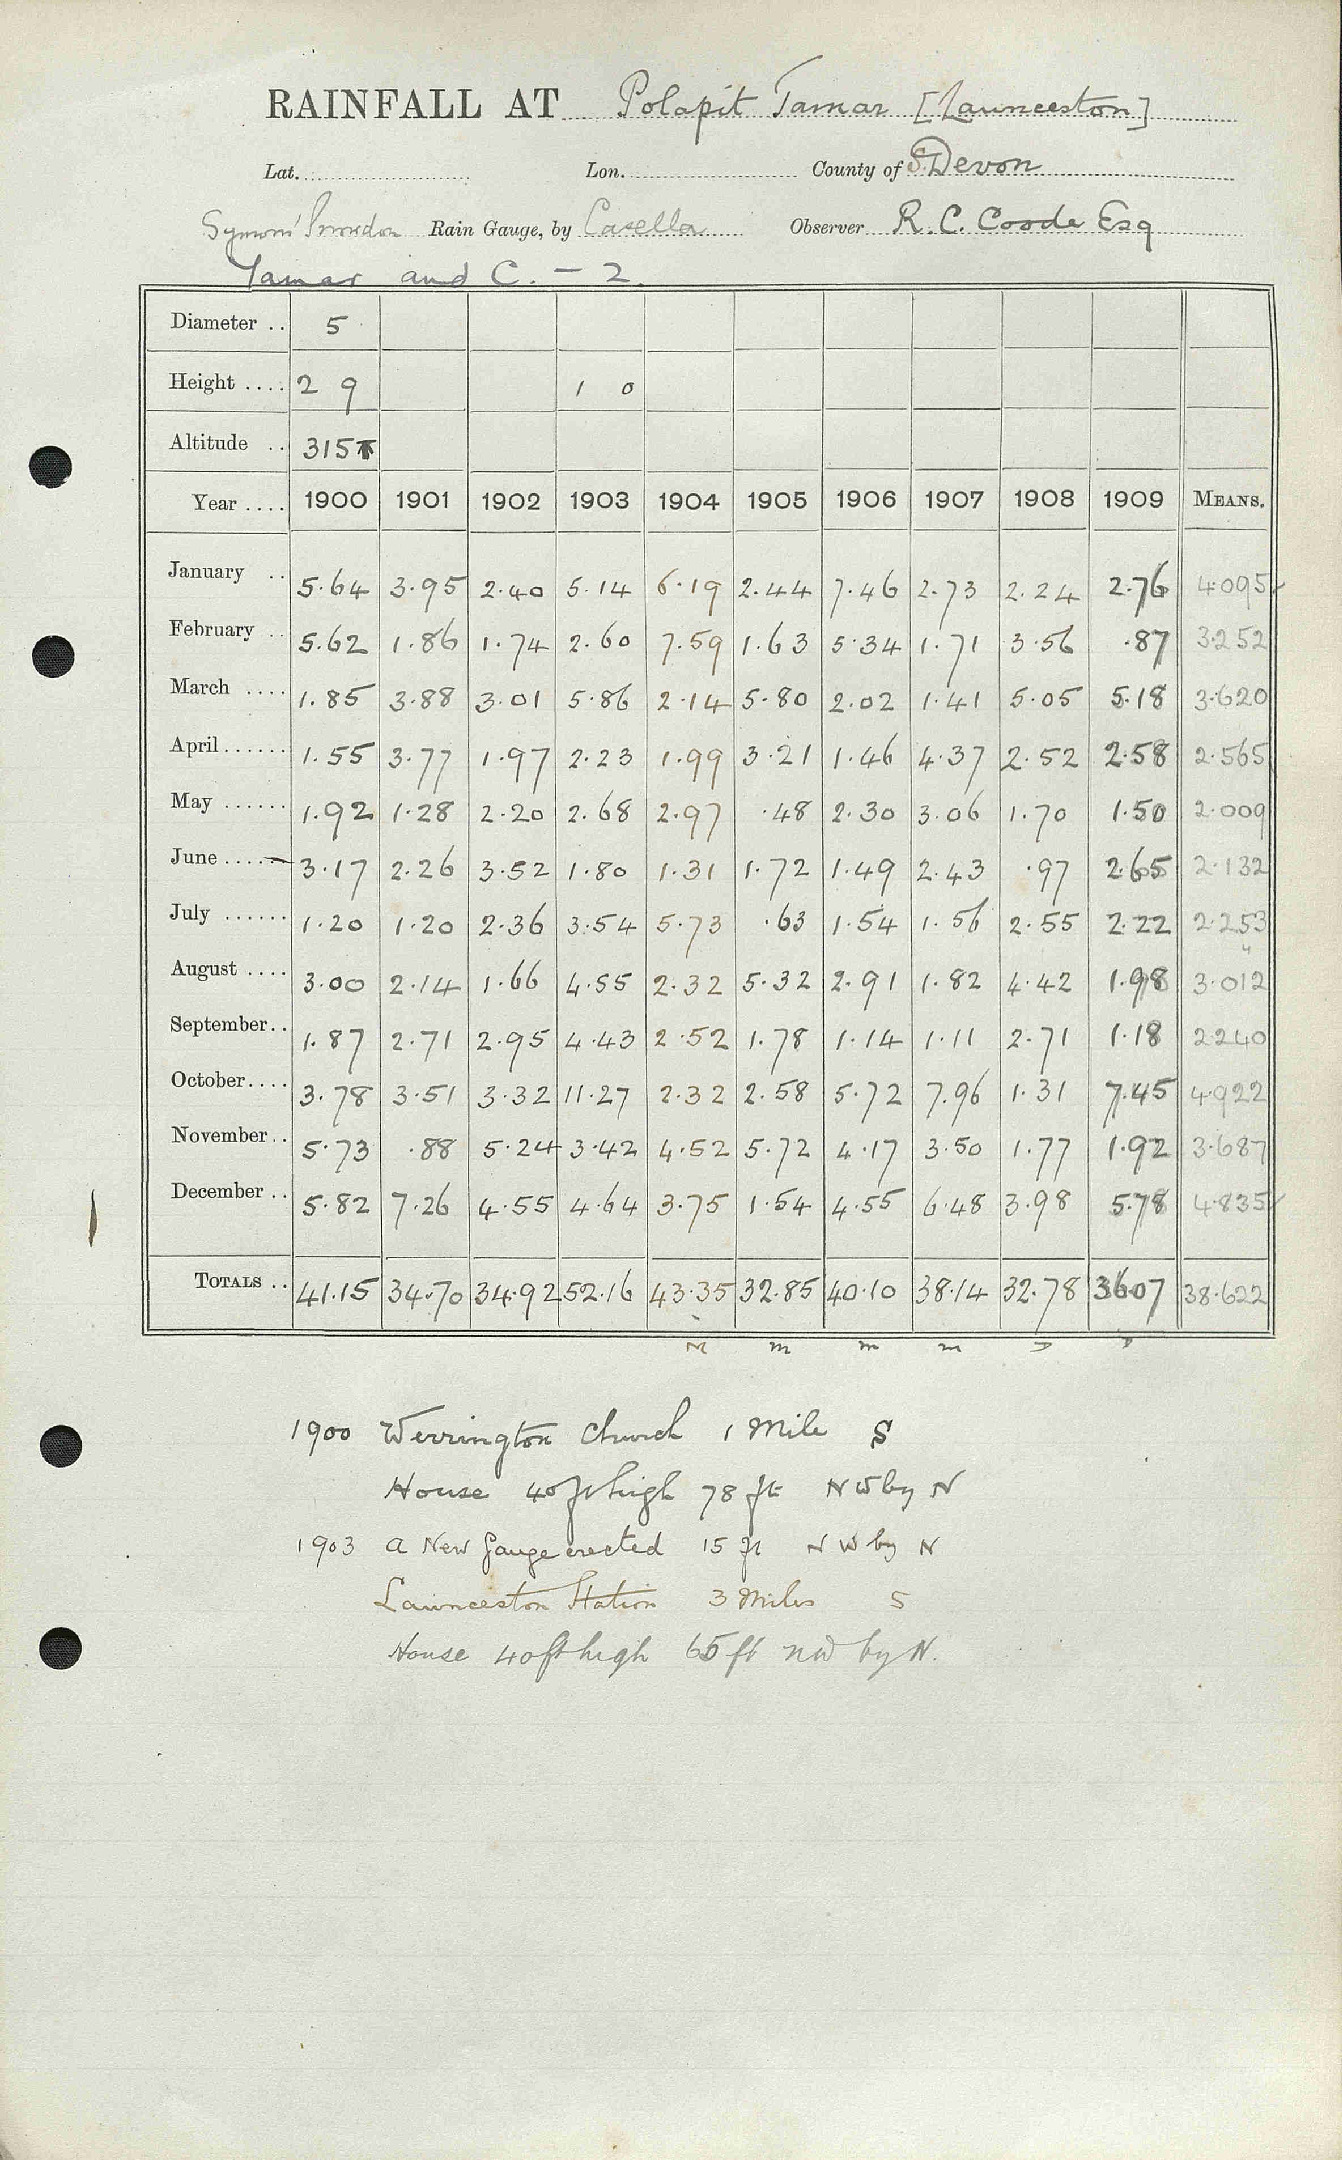 RAINFALL AT Polapit Tamar [Launceston]
Lat. Lon. County of S. Devon
Symons' Snowdon Rain Gauge, by Casella Observer R. C. Coode Esq
Tamar and C. - 2.
Diameter .. 5
Height .... 2 9 1 0
Altitude .. 315
Year .... 1900 1901 1902 1903 1904 1905 1906 1907 1908 1909 MEANS.
January .. 5.64 3.95 2.40 5.14 6.19 2.44 7.46 2.73 2.24 2.76 4.095
February .. 5.62 1.86 1.74 2.60 7.59 1.63 5.34 1.71 3.56 .87 3.252
March .... 1.85 3.88 3.01 5.86 2.14 5.80 2.02 1.41 5.05 5.18 3.620
April ...... 1.55 3.77 1.97 2.23 1.99 3.21 1.46 4.37 2.52 2.58 2.565
May ...... 1.92 1.28 2.20 2.68 2.97 .48 2.30 3.06 1.70 1.50 2.009
June .... 3.17 2.26 3.52 1.80 1.31 1.72 1.49 2.43 .97 2.65 2.132
July ...... 1.20 1.20 2.36 3.54 5.73 .63 1.54 1.56 2.55 2.22 2.253
August .... 3.00 2.14 1.66 4.55 2.32 5.32 2.91 1.82 4.42 1.98 3.012
September .. 1.87 2.71 2.95 4.43 2.52 1.78 1.14 1.11 2.71 1.18 2.240
October .... 3.78 3.51 3.32 11.27 2.32 2.58 5.72 7.96 1.31 7.45 4.922
November .. 5.73 .88 5.24 3.42 4.52 5.72 4.17 3.50 1.77 1.92 3.687
December .. 5.82 7.26 4.55 4.64 3.75 1.54 4.55 6.48 3.98 5.78 4.835
TOTALS .. 41.15 34.70 34.92 52.16 43.35 32.85 40.10 38.14 32.78 36.07 38.622
M m m m
1900 Werrington Church 1 Mile S
House 40ft high 78 ft NW by N
1903 A New Gauge erected 15 ft NW by N
Launceston Station 3 Miles S
House 40ft high 65 ft NW by N.